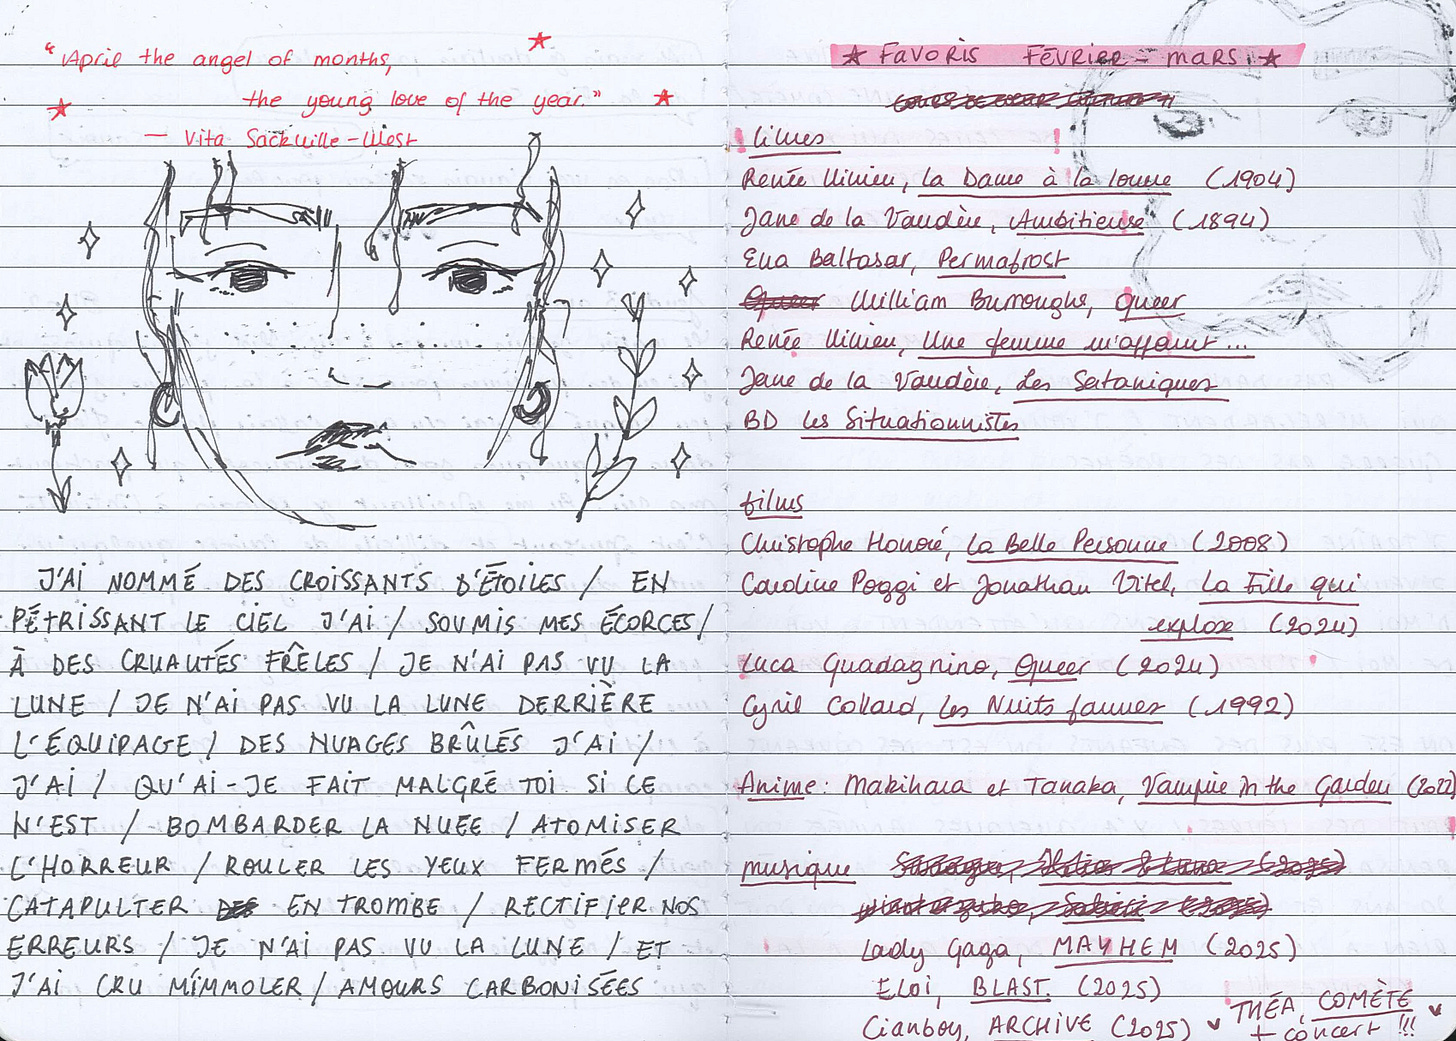 "April the angel of months,
the young love of the year."
— Vita Sackville-West
J'AI NOMMÉ DES CROISSANTS D'ÉTOILES / EN
PÉTRISSANT LE CIEL J'AI / SOUMIS MES ÉCORCES /
À DES CRUAUTÉS FRÊLES / JE N'AI PAS VU LA
LUNE / JE N'AI PAS VU LA LUNE DERRIÈRE
L'ÉQUIPAGE / DES NUAGES BRÛLÉS J'AI /
J'AI / QU'AI-JE FAIT MALGRÉ TOI SI CE
N'EST / BOMBARDER LA NUÉE / ATOMISER
L'HORREUR / ROULER LES YEUX FERMÉS /
CATAPULTER EN TROMBE / RECTIFIER NOS
ERREURS / JE N'AI PAS VU LA LUNE / ET
J'AI CRU M'IMMOLER / AMOURS CARBONISÉES
★ FAVORIS FÉVRIER - MARS ★
! Livres !
Renée Vivien, La Dame à la louve (1904)
Jane de la Vaudère, Ambitieuse (1894)
Eva Baltasar, Permafrost
William Burroughs, Queer
Renée Vivien, Une femme m'apparut...
Jane de la Vaudère, Les Sataniques
BD Les Situationnistes
films
Christophe Honoré, La Belle Personne (2008)
Caroline Poggi et Jonathan Vinel, La Fille qui
explose (2024)
Luca Guadagnino, Queer (2024)
Cyril Collard, Les Nuits fauves (1992)
Anime: Makihara et Tanaka, Vampire in the Garden (2022)
musique
Lady Gaga, MAYHEM (2025)
Eloi, BLAST. (2025)
Cianboy, ARCHIVE (2025)
THÉA, COMÈTE
+ concert !!!